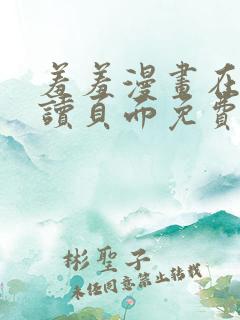 羞羞漫畫在
讀頁面免費
彬聖子
未経同意禁止轉載